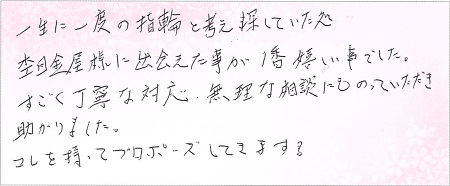 一生に一度の指輪と考え探していた処
杢目金屋様に出会えた事が1番嬉しい事でした。
すごく丁寧な対応、無理な相談にものっていただき
助かりました。
コレを持ってプロポーズしてきます!